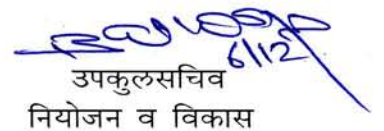 6/12
उपकुलसचिव
नियोजन व विकास